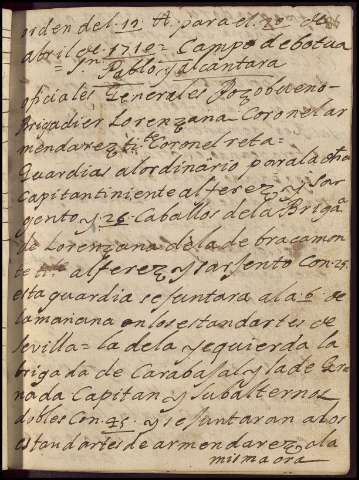 orden del 19 A. para el 20 de
abril de 1710 = Campo de botua
= Sn Pablo y alcantara
oficiales Generales Pozobueno
Brigadier Lorenzana Coronel ar
mendarez tte Coronel reta =
Guardias alordinario para la otra
Capitan tiniente alferez y Sar
gento y 26 Caballos de la Briga
de Lorenzana de la de bracamon
te alferez y Sarsento Con 25
esta guardia se juntara a la 6 de
la mañana en los estandartes de
Sevilla = la de la yzquierda la
brigada de Carabajal y la de Gra
nada Capitan y subalternos
dobles Con 25 y se juntaran a los
estandartes de armendarez a la
misma ora